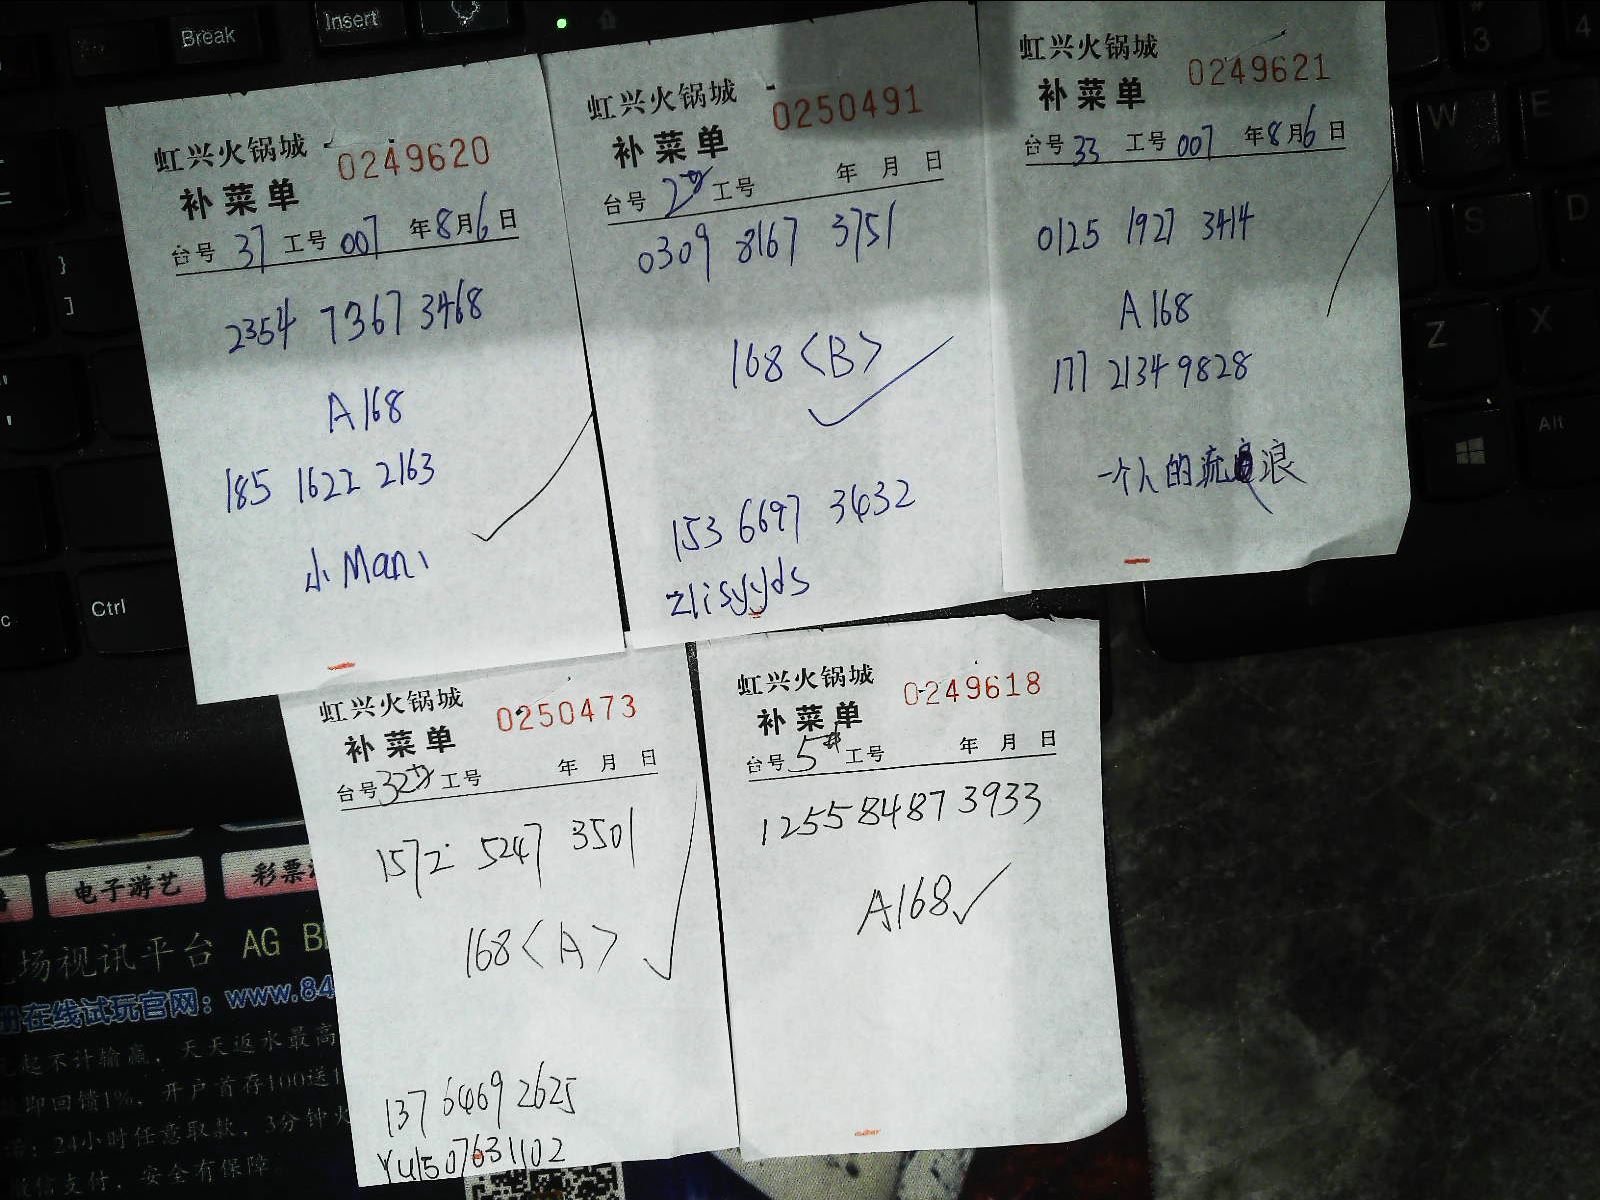 Break
Insert
虹兴火锅城
0249620
补菜单
台号 37 工号 007 年8月6日
2354 7367 3468
A168
185 1622 2163
小Mani
虹兴火锅城
0250491
补菜单
台号 2 工号 年 月 日
0309 8167 3751
168<B>
153 6697 3432
zlisyyds
虹兴火锅城
0249621
补菜单
台号 33 工号 007 年8月6日
0125 1927 3414
A168
177 2134 9828
一个人的流浪
虹兴火锅城
0250473
补菜单
台号 32 工号 年 月 日
1572 5247 3501
168<A>
137 6469 2625
Yu1507631102
虹兴火锅城
0249618
补菜单
台号 5 工号 年 月 日
1255 8487 3933
A168
3
4
W
E
S
D
Z
X
Alt
}
]
"
'
Ctrl
c
电子游艺
彩票
场视讯平台 AG
册在线试玩官网：www.84
起不计输赢，天天返水最高
即回馈1%，开户首存100送
：24小时任意取款，3分钟火
信支付，安全有保障